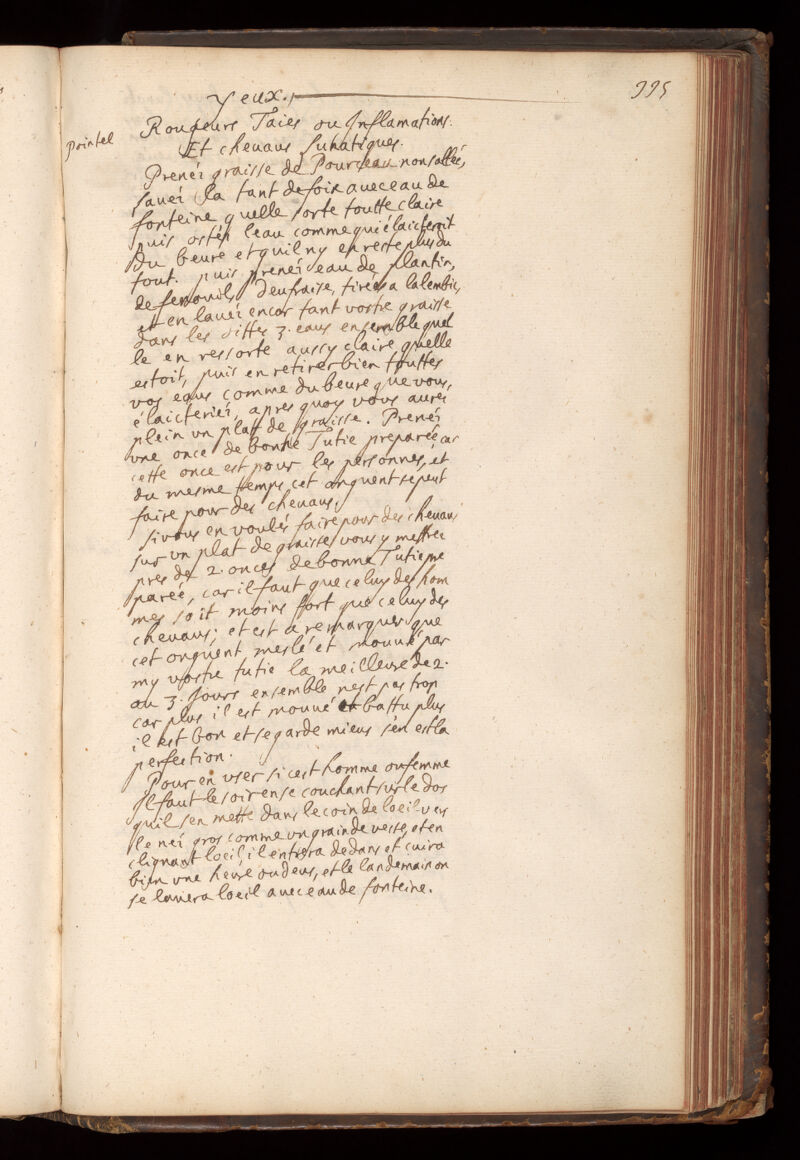 Yeux.
995
pointel
Rougeurs Taies ou Inflamations.
Et cheuaus Lunatiques.
Prenéz graisse de Pourceau non sallée,
lauéz la tant de fois auec eau de
fonteine quelle sorte toutte claire
puis ostéz leau comme qui élaicteroit
du beure et quil ny en reste plus du
tout. puis prenéz eau de plantin,
de fenouil, deufraise, tirées a lalembic,
et en lauéz encor tant vostre graisse
dans les dittes 3. eaus ensemble quel
le en ressorte aussy claire quelle
estoit, puis en retirés bien touttes
vos eaus comme du beure que vous
élaicteriéz, apres quoy vous aures
plein un plat de graisse. Prenéz
vne once de bonne Tutie preparée, car
cette once est pour les personnes, et
du mesme temps cet onguent se peut
faire pour des cheuaus.
si vous en voulés faire pour des cheuaus
sur vn plat de graisse vous y mettrez
pres de 2. onces de bonne Tutie pre
parée, car il faut que celuy des hom
mes soit moins fort que celuy des
cheuaus; et est a remarquer que
cet onguent meslé et mouué par
my vostre tutie la meilleure de 2.
ou 3. Jours ensemble nest pas trop
car plus il est mouué et battu plus
il est bon et se garde mieus s'en est la
perfection.
Pour en vser si cest homme ou femme
Il faut le soir en se couchant sur le dos
quil s'en mette dans le coin de loeil vers
le néz gros comme vn grain de vesse, et en
clignant loeil, il entrera dedans et cuira
bien vne heure ou deus, et le landemain on
se lauera loeil auec eau de fonteine.